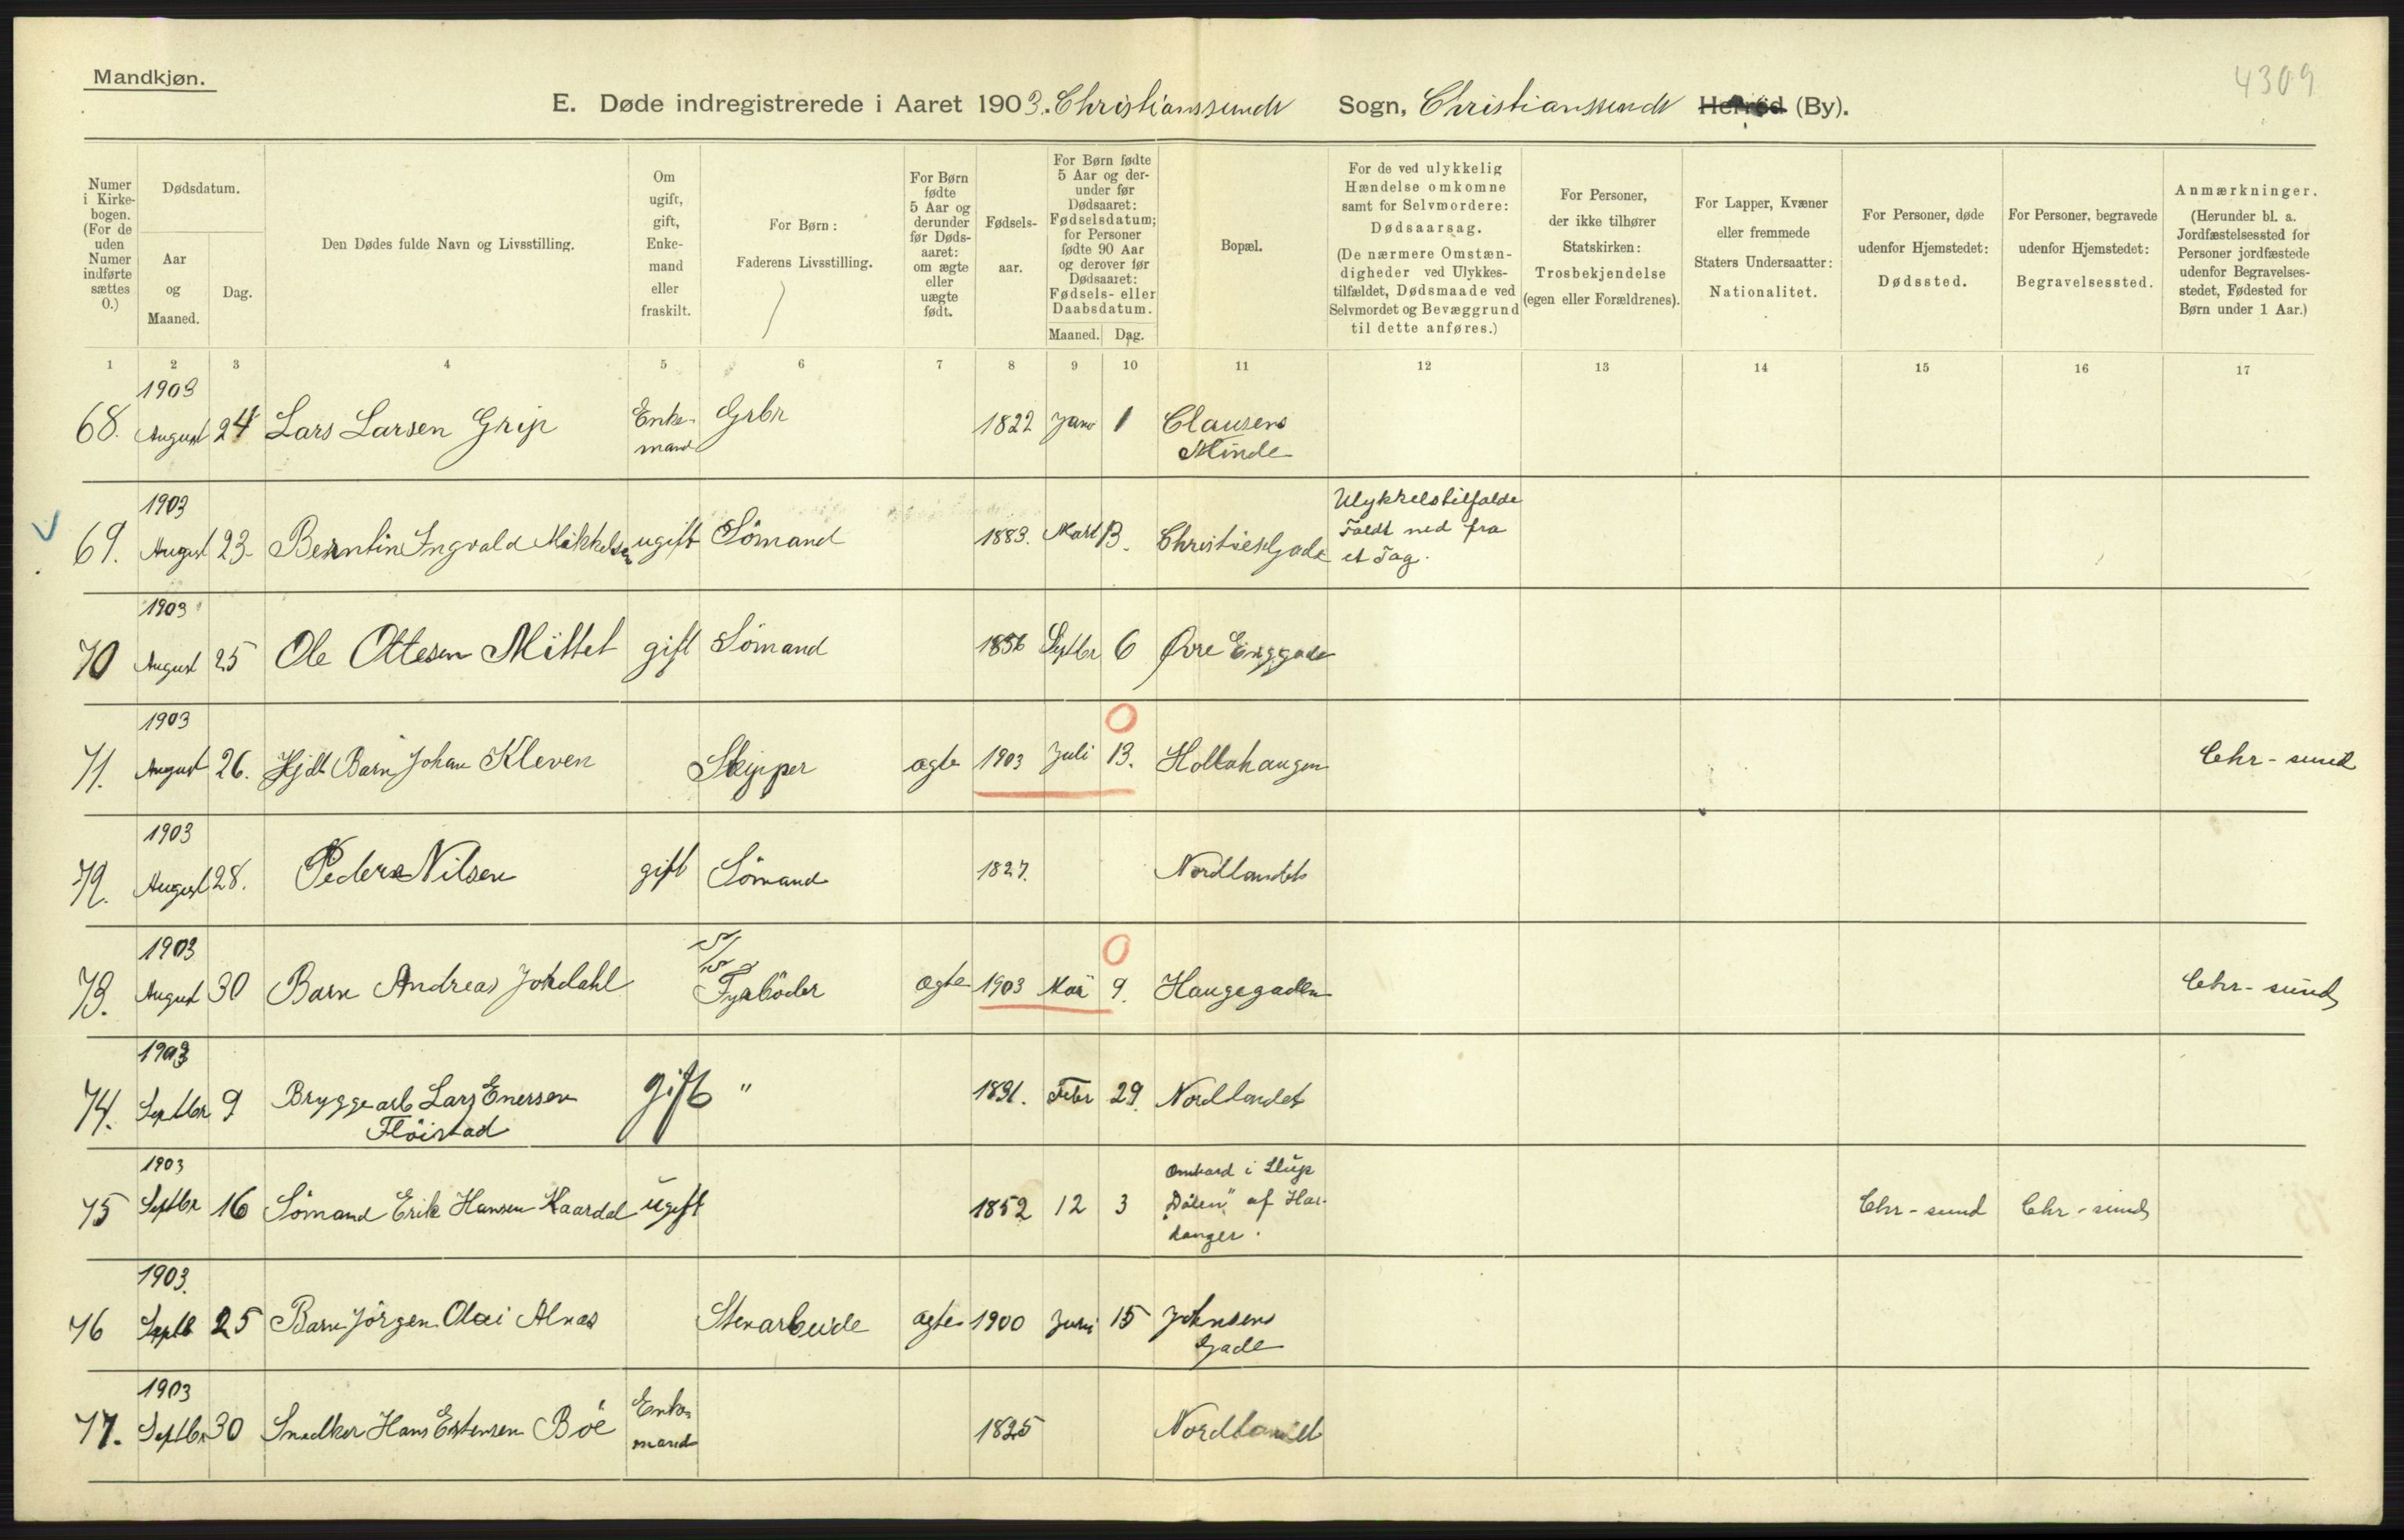 Mandkjøn.
4309
E. Døde indregistrerede i Aaret 1903. Christianssunds Sogn, Christianssunds Herred (By).
Numer i Kirke-bogen. (For de uden Numer indførte sættes 0.)
Dødsdatum.
Aar og Maaned.
Dag.
Den Dødes fulde Navn og Livsstilling.
Om ugift, gift, Enke-mand eller fraskilt.
For Børn: Faderens Livsstilling.
For Børn fødte 5 Aar og derunder før Døds-aaret: om ægte eller uægte født.
Fødsels-aar.
For Børn fødte 5 Aar og der-under før Dødsaaret: Fødselsdatum; for Personer fødte 90 Aar og derover før Dødsaaret: Fødsels- eller Daabsdatum.
Maaned. Dag.
Bopæl.
For de ved ulykkelig Hændelse omkomne samt for Selvmordere: Dødsaarsag. (De nærmere Omstæn-digheder ved Ulykkes-tilfældet, Dødsmaade ved Selvmordet og Bevæggrund til dette anføres.)
For Personer, der ikke tilhører Statskirken: Trosbekjendelse (egen eller Forældrenes).
For Lapper, Kvæner eller fremmede Staters Undersaatter: Nationalitet.
For Personer, døde udenfor Hjemstedet: Dødssted.
For Personer, begravede udenfor Hjemstedet: Begravelsessted.
Anmærkninger. (Herunder bl. a. Jordfæstelsessted for Personer jordfæstede udenfor Begravelses-stedet, Fødested for Børn under 1 Aar.)
1 2 3 4 5 6 7 8 9 10 11 12 13 14 15 16 17
1903
68. August 24 Lars Larsen Grip Enke-mand Grbr 1822 Janr 1 Clausens Minde
1903
69. August 23. Berntin Ingvald Mikkelsen ugift Sömand 1883. Mart 13. Christies Gade Ulykkelstilfalde Faldt ned fra et Tag.
1903
70 August 25 Ole Ottesen Mittet gift Sömand 1856 Septbr 6 Øvre Enggade
1903
71. August 26. Hjdt Barn Johan Kleven Skipper ægte 1903 Juli 13. Hollahaugen Chr-sund
1903
72. August 28. Peder Nilsen gift Sömand 1827. Nordlandet
1903
73. August 30 Barn Andreas Jordahl Fyrböder ægte 1903 Mai 9. Haugegaden Chr-sund
1903
74. Septbr 9 Bryggearb Lars Enersen Flöistad gift " 1831. Febr 29. Nordlandet
1903
75 Septbr 16 Sömand Erik Hansen Kaardal ugift 1852 12 3 Ombord i Slup "Dölen" af Har-danger. Chr-sund Chr-sund
1903.
76 Septb 25 Barn Jörgen Olai Alnæs Stenarbeide ægte 1900 Juni 15 Johnsens Gade
1903
77. Septbr 30 Snedker Hans Estensen Böe Enke-mand 1825 Nordlandet